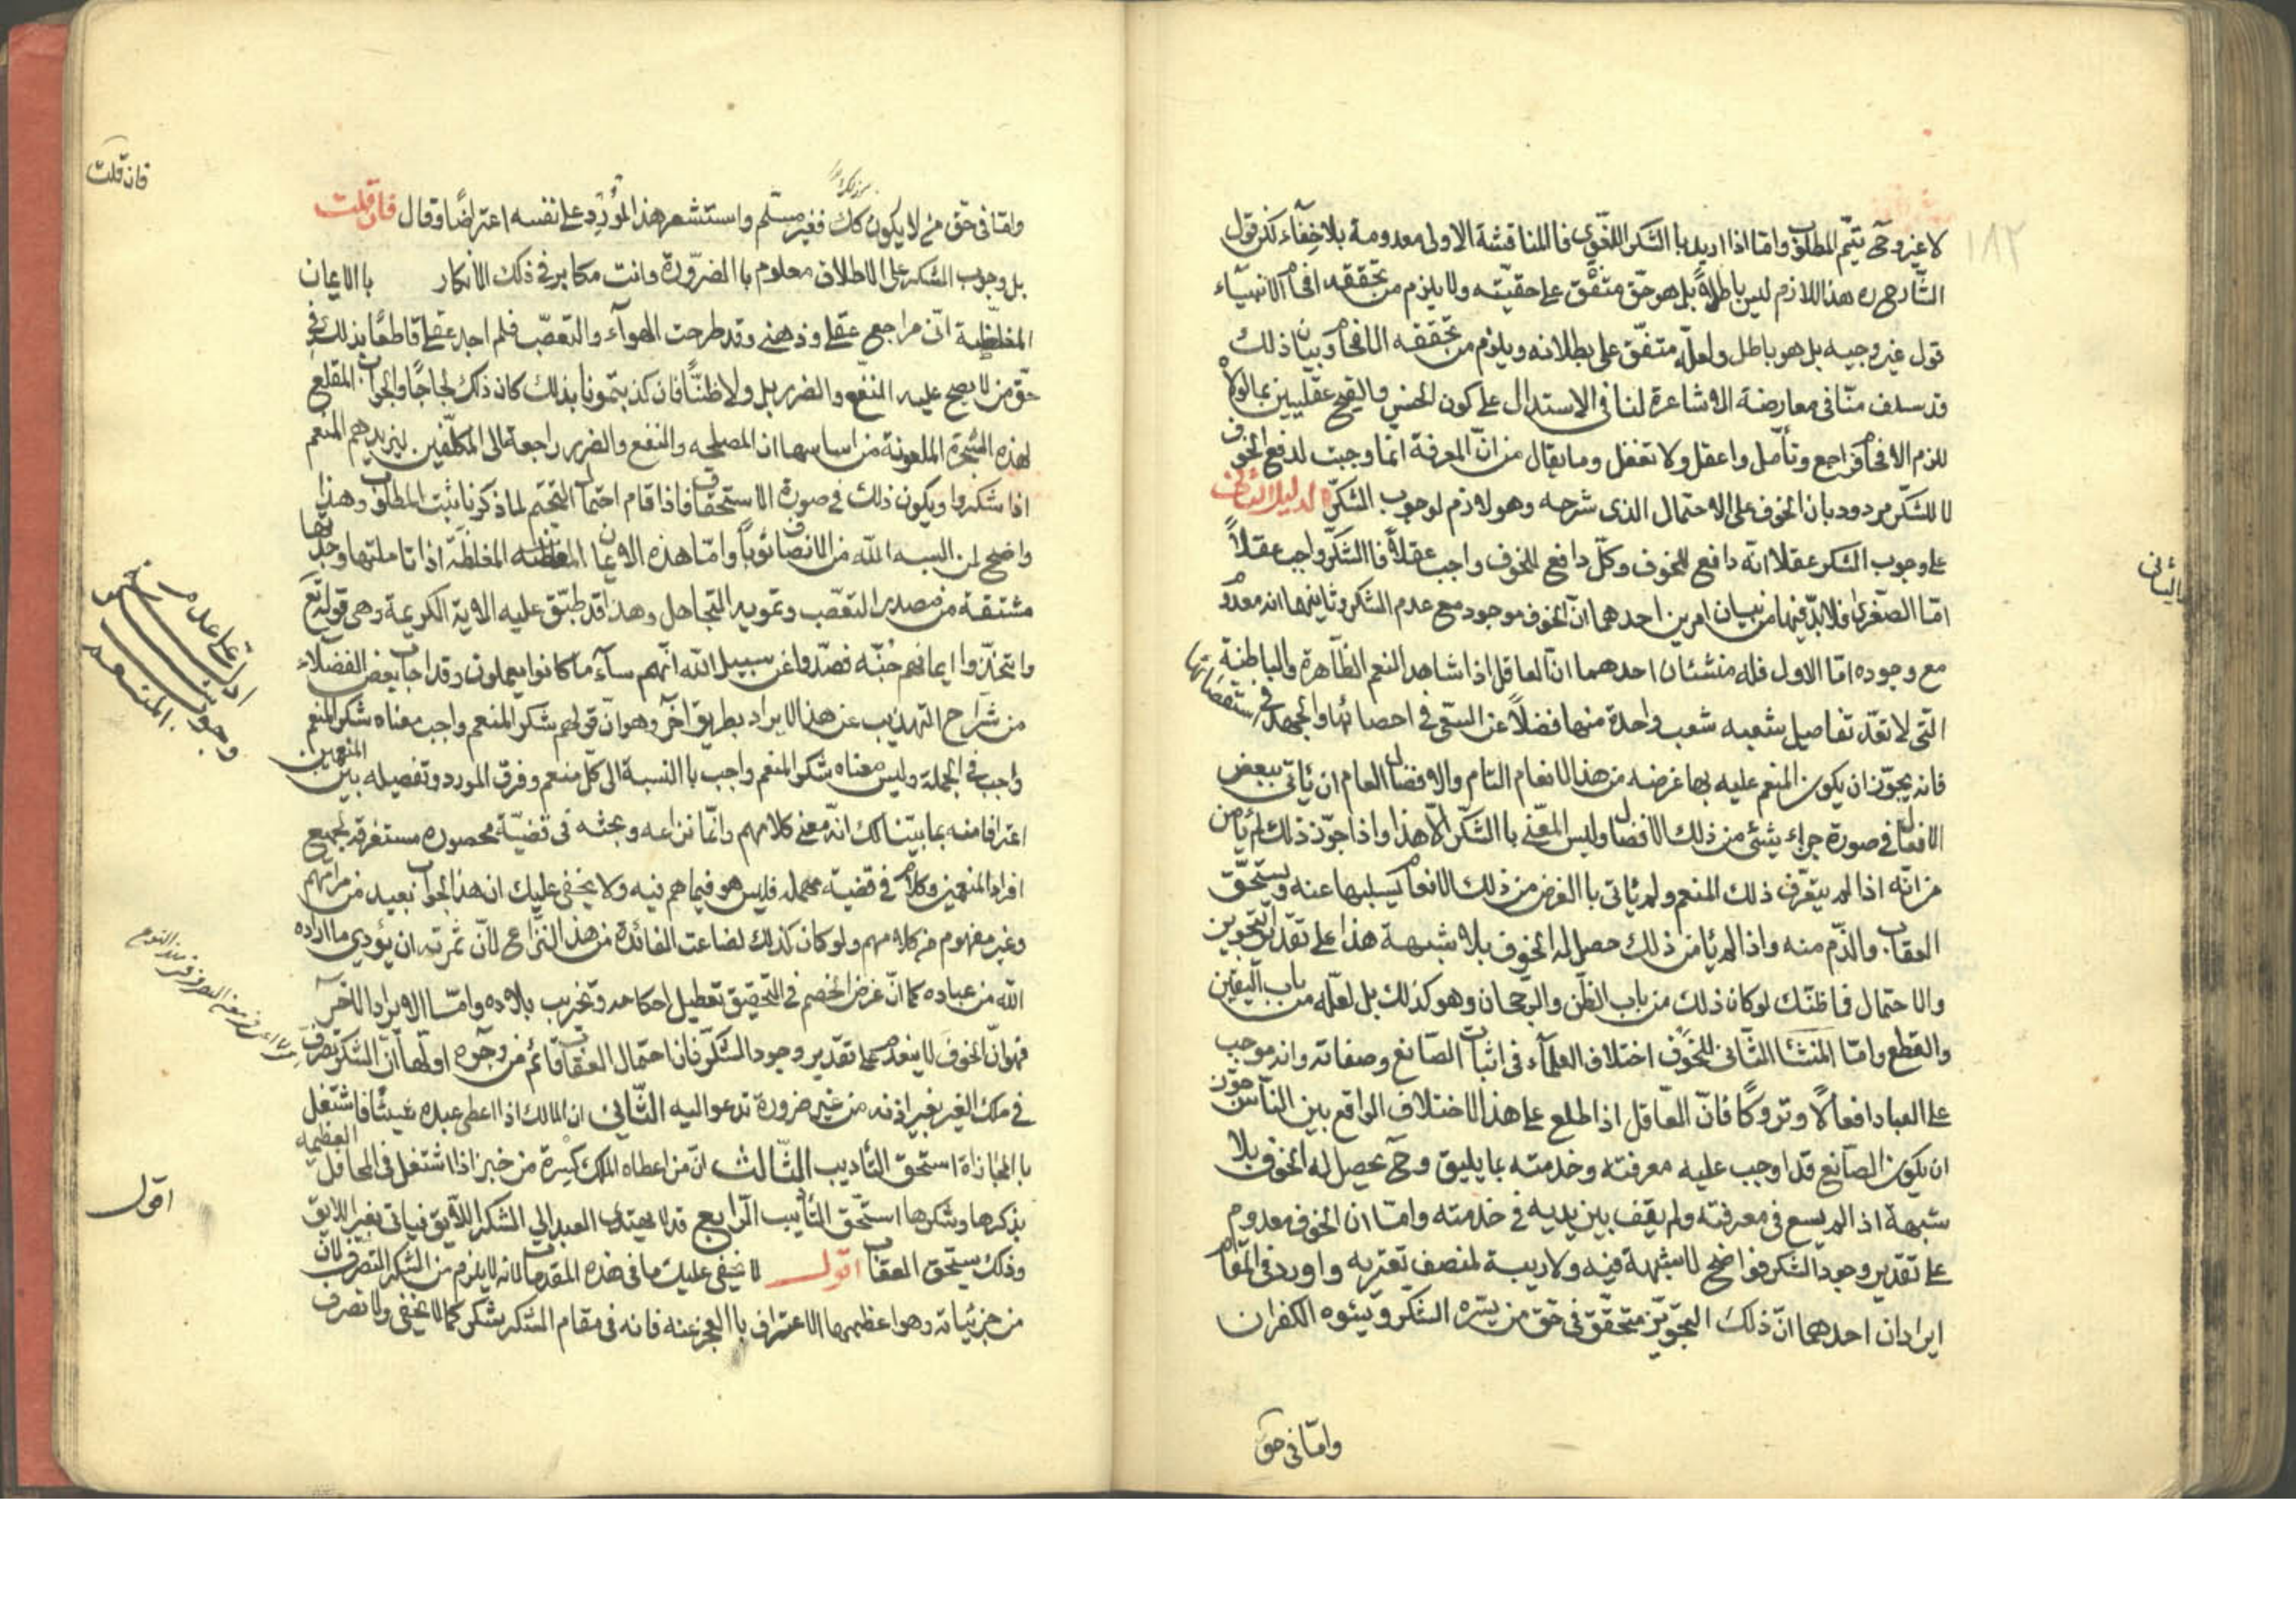 ١٨٢
لا غير وح يتم المطلوب واما اذا اريد باالشكر اللغوي فاالمناقشة الاولى معدومة بلا خفاء لكن قول
الشارح ره هذا اللازم ليس باطلا بل هو حق متفق على حقيته ولا يلزم من تحققه افحام الانبياء
قول غير وجيه بل هو باطل ولعله متفق على بطلانه ويلزم من تحققه الافحام وبيان ذلك
قد سلف منا في معارضة الاشاعرة لنا في الاستدلال على كون الحسن والقبح عقليين بما لولاه
للزم الافحام فراجع وتأمل واعقل ولا تغفل وما يقال من ان المعرفة انما وجبت لدفع الخوف
لا للشكر مردود بان الخوف على الاحتمال الذى شرحه وهو لازم لوجوب الشكر الدليل الثاني
على وجوب الشكر عقلا انه دافع للخوف وكل دافع للخوف واجب عقلاً فاالشكر واجب عقلاً
الثاني
اما الصغرى فلا بد فيها من بيان امرين احدهما ان الخوف موجود مع عدم الشكر وثانيهما انه معدوم
مع وجوده اما الاول فله منشئان احدهما ان العاقل اذا شاهد النعم الظاهرة والباطنية
التي لا تعد تفاصيل شعبه شعب واحدة منها فضلاً عن السعى في احصائها والجهد في استقصائها
فانه يجوز ان يكون المنعم عليه بها غرضه من هذا الانعام التام والافضال العام ان يأتى ببعض
الافعال في صورة جزاء يثنى من ذلك الافضال وليس المعنى باالشكر الا هذا واذا جوز ذلك لم يأمن
من انه اذا لم يتعرف ذلك المنعم ولم يأتى باالغرض من ذلك الانعام يسلبها عنه ويستحق
العقاب والذم منه واذا لم يأمن ذلك حصل له الخوف بلا شبهة هذا على تقدير التجويز
والاحتمال فما ظنك لو كان ذلك من باب الظن والرجحان وهو كذلك بل لعله من باب اليقين
والقطع واما المنشأ الثاني للخوف اختلاف العلمآء في اثبات الصانع وصفاته وانه موجب
على العباد افعالاً وتروكاً فان العاقل اذا طلع على هذا الاختلاف الواقع بين الناس جوز
ان يكون الصانع قد اوجب عليه معرفته وخدمته بما يليق وح يحصل له الخوف بلا
شبهة اذ لم يسع في معرفته ولم يقف بين يديه في خدمته واما ان الخوف معدوم
على تقدير وجود الشكر فواضح لا شبهة فيه ولا ريبة لمنصف تعتريه واورد في المقام
ايرادان احدهما ان ذلك التجويز متحقق في حق من يسره الشكر ويسوءه الكفران
واما في حق
فان قلت
واما في حق من لا يكون كك فغير مسلم واستشعر هذا المورد على نفسه اعتراضاً وقال فان قلت
بل وجوب الشكر على الاطلاق معلوم باالضرورة وانت مكابر في ذلك الانكار باالايمان
المغلظة انى مراجع عقلي وذهنى وقد طرحت الهوآء والتعصب فلم اجد عقلى قاطعاً بذلك في
حق من لا يصح عليه النفع والضرر بل ولا ظناً فان كذبتمونا بذلك كان ذلك لجاجاً والجواب المقلع
لهذه الشجرة الملعونة من اساسها ان المصلحه والنفع والضرر راجعة الى المكلفين ليزيدهم المنعم
اذا شكروا ويكون ذلك في صورة الاستحقاق فاذا قام احتمال التحتم لما ذكرنا ثبت المطلوب وهذا
واضح لمن البسه الله من الانصاف ثوباً واما هذه الايمان المغلظة اذا تاملتها وجدتها
مشتقة من مصدر التعصب وتمويه التجاهل وهذا قد طبق عليه الاية الكريمة وهى قوله تع
واتخذوا ايمانهم جنة فصدوا عن سبيل الله انهم سآء ما كانوا يعملون وقد اجاب بعض الفضلاء
من شراح التهذيب عن هذا الايراد بطريق اخر وهو ان قولهم شكر المنعم واجب معناه شكر المنعم
واجب في الجملة وليس معناه شكر المنعم واجب باالنسبة الى كل منعم وفرق المورد وتفصيله بين المنعمين
اعترافا منه بما بيننا لك انه معنى كلامهم وانما نزاعه وبحثه في قضية محصوره مستغرقة لجميع
افراد المنعمين وكلام في قضية مهمله فليس هو فيما هم فيه ولا يخفى عليك ان هذا الجواب بعيد من مرامهم
وغير مفهوم من كلامهم ولو كان كذلك لضاعت الفائدة من هذا النزاع لان ثمرته ان يؤدي ما اراده
الله من عباده كما ان غرض الخصم في التحقيق تعطيل احكامه وتخريب بلاده واما الايراد الاخر
فهو ان الخوف لا ينعدم على تقدير وجود الشكر فان احتمال العقاب قائم من وجوه اولها ان الشكر تصرف
في ملك الغير بغير اذنه من غير ضرورة تدعو اليه الثاني ان المالك اذا اعطى عبده شيئا فاشتغل
باالمجازاة استحق التأديب الثالث ان من اعطاه الملك كسرة من خبز اذا اشتغل في المحافل العظيمه
بذكرها وشكرها استحق التأديب الرابع قد لا يهتدى العبد الي الشكر اللآيق فياتى بغير اللايق
وذلك يستحق العقاب اقول لا يخفى عليك ما في هذه المقدمات لانه لا يلزم من الشكر التصرف لان
من جزئياته وهو اعظمها الاعتراف باالعجز عنه فانه في مقام الشكر شكر كما لا يخفى ولا تصرف
وجوب شكر المنعم
اقول